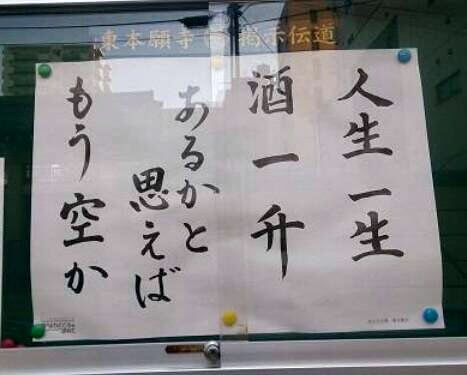 東本願寺 掲示伝道
人生一生
酒一升
あるかと
思えば
もう空か